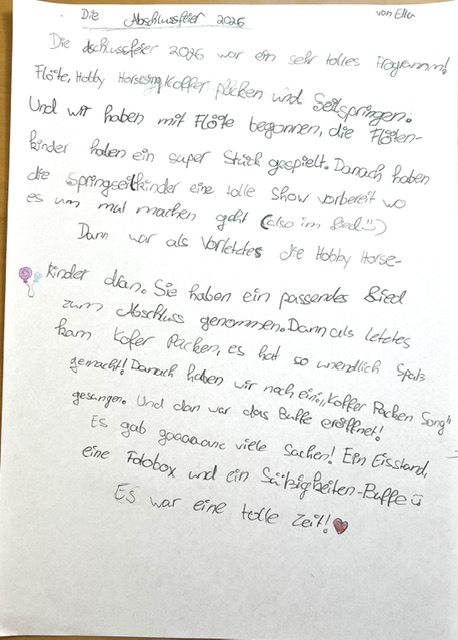 Die Abschlussfeier 2026 von Ella
Die Abschlussfeier 2026 war ein sehr tolles Programm!
Flöte, Hobby Horsesing, Koffer packen und Seilspringen.
Und wir haben mit Flöte begonnen, die Flöten-
kinder haben ein super Stück gespielt. Danach haben
die Springseilkinder eine tolle Show vorbereit wo
es um mal machen geht (also im Lied☺)
Dann war als Vorletztes die Hobby Horse-
kinder dran. Sie haben ein passendes Lied
zum Abschluss genommen. Dann als letztes
kam Kofer Packen, es hat so unendlich Spaß
gemacht! Danach haben wir noch ein „Koffer Packen Song"
gesangen. Und dan war das Buffe eröffnet!
Es gab gaaaaanz viele Sachen! Ein Eisstand,
eine Fotobox und ein Süßigkeiten-Buffe ü
Es war eine tolle Zeit! ♥